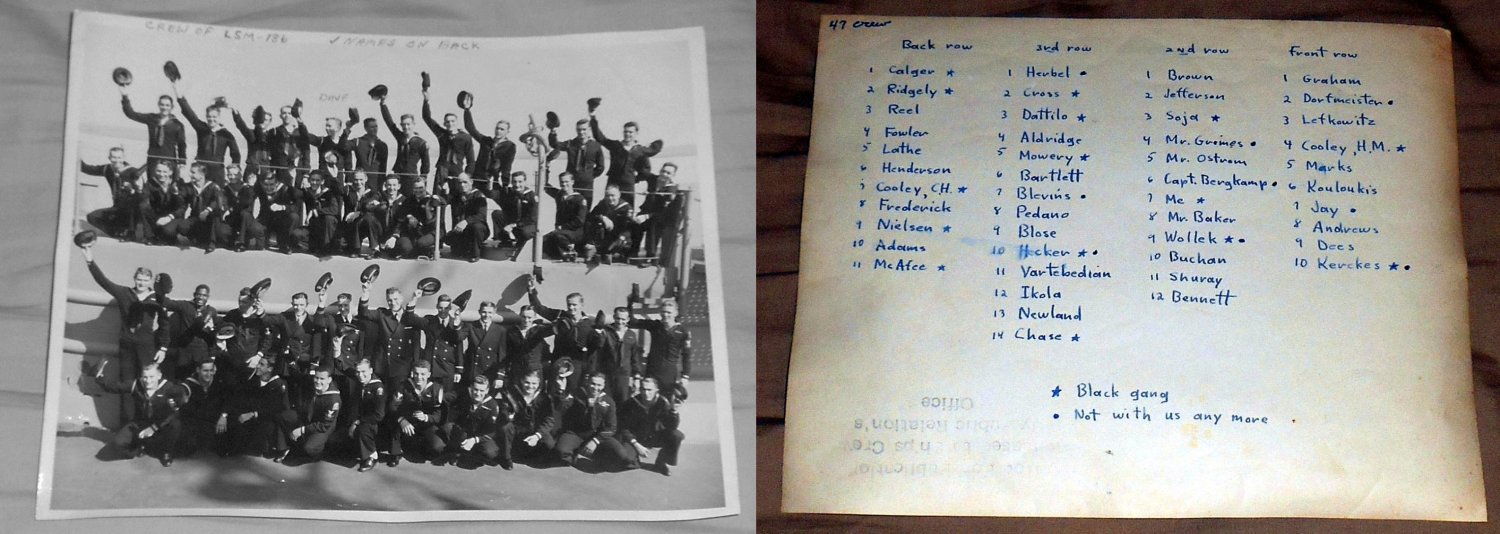 CREW OF LSM-186 ✓ NAMES ON BACK
DAVE
47 crew
Back row
1 Calger ★
2 Ridgely ★
3 Reel
4 Fowler
5 Lathe
6 Henderson
7 Cooley, C.H. ★
8 Frederick
9 Nielsen ★
10 Adams
11 McAfee ★
3rd row
1 Herbel •
2 Cross ★
3 Dattilo ★
4 Aldridge
5 Mowery ★
6 Bartlett
7 Blevins •
8 Pedano
9 Blose
10 Hecker ★ •
11 Vartebedian
12 Ikola
13 Newland
14 Chase ★
2nd row
1 Brown
2 Jefferson
3 Soja ★
4 Mr. Grimes •
5 Mr. Ostrom
6 Capt. Bergkamp •
7 Me ★
8 Mr. Baker
9 Wollek ★ •
10 Buchan
11 Shuray
12 Bennett
Front row
1 Graham
2 Dorfmeister •
3 Lefkowitz
4 Cooley, H.M. ★
5 Marks
6 Kouloukis
7 Jay •
8 Andrews
9 Dees
10 Kerckes ★ •
★ Black gang
• Not with us any more
Relation's
Office